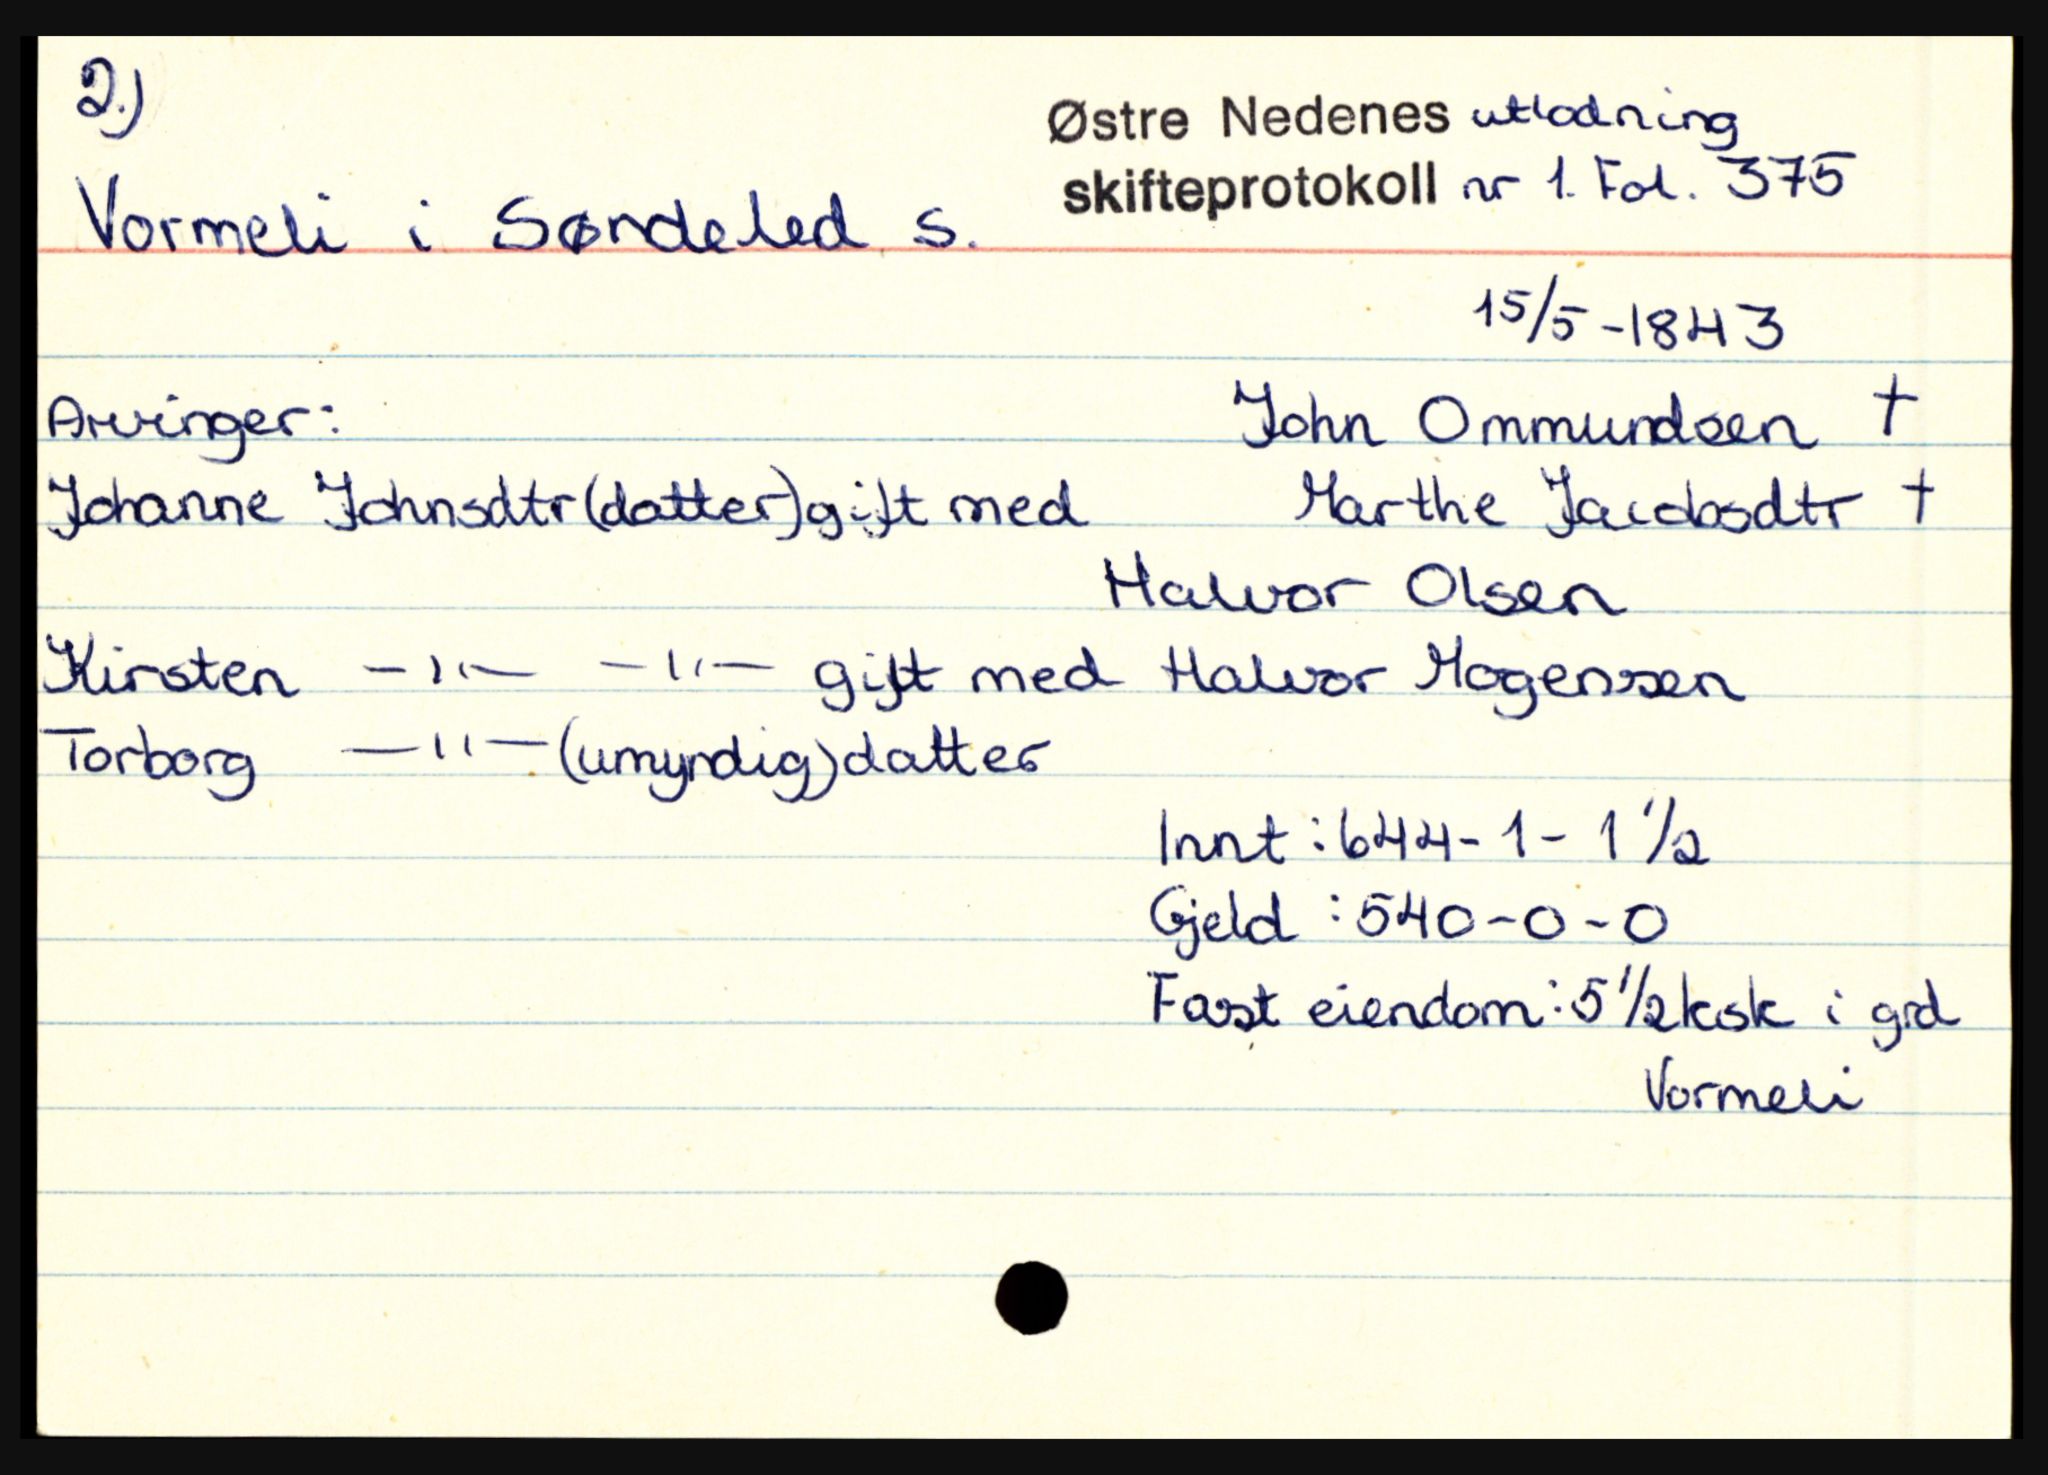 2.)
Østre Nedenes utlodning
skifteprotokoll nr 1. Fol. 375
Vormeli i Søndeled s.
15/5-1843
Arvinger:
John Ommundsen †
Johanne Johnsdtr (datter) gift med
Marthe Jacobsdtr †
Halvor Olsen
Kirsten —"— —"— gift med Halvor Mogenssen
Torborg —"— (umyndig) datter
Innt: 644-1-1 1/2
Gjeld: 540-0-0
Fast eiendom: 5 1/2 ksk i grd
Vormeli